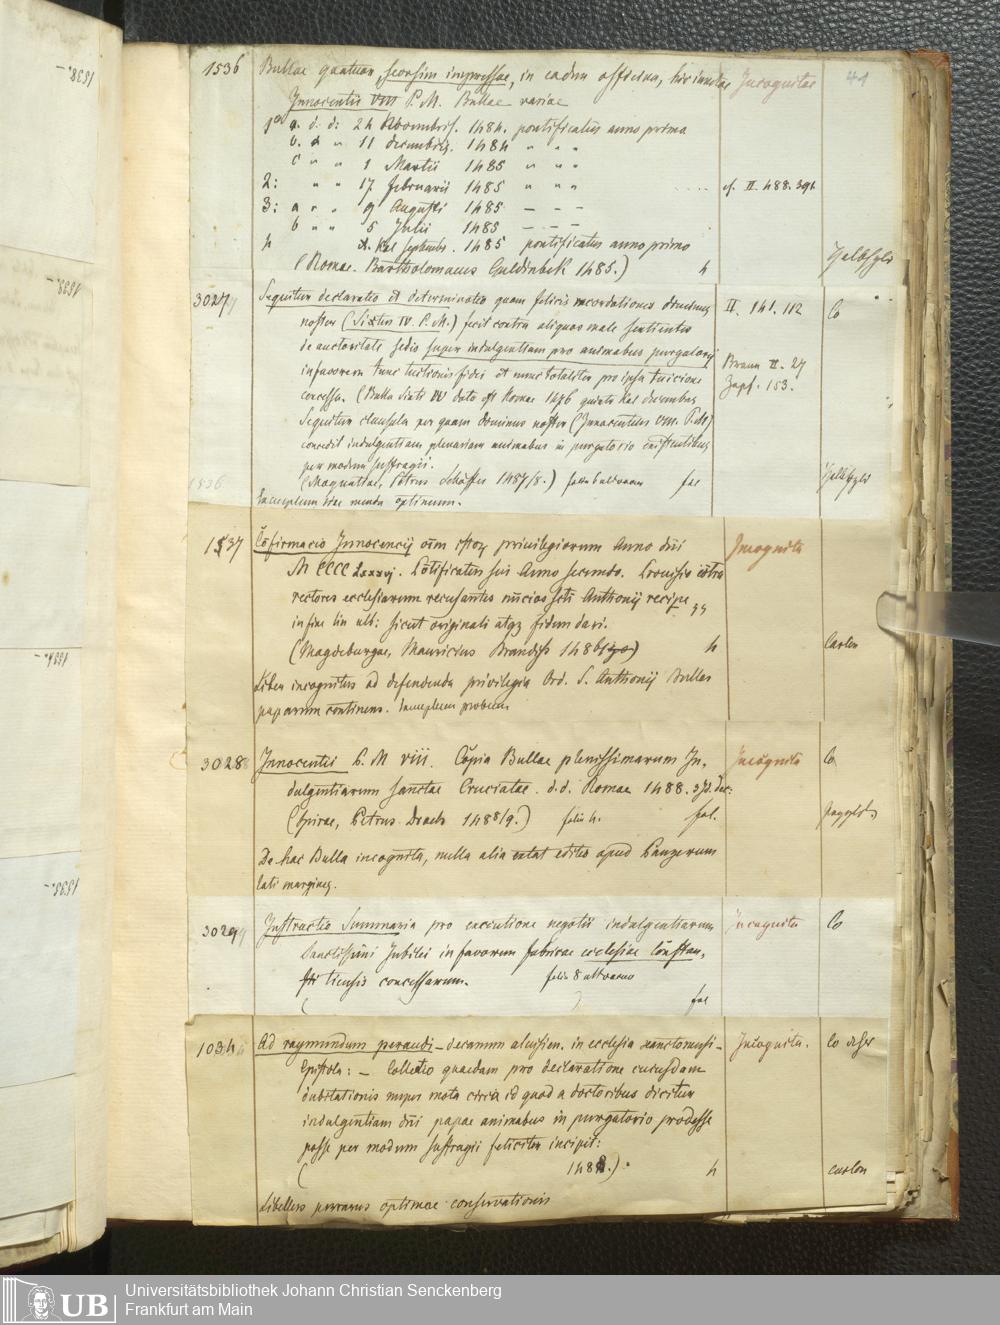 1538.-
1533.-
1534.-
1535.-
41
1536 Bullae quatuor seorsim impressae, in eadem officina, hic iunctae Incognitae
Innocentii VIII P. M. Bullae variae
1a a. d. d: 24 Novembris. 1484. pontificatus anno primo
b. d " 11 decembris. 1484 " " "
c " " 1 Martii 1485 " " "
2: " " 17 februarii 1485 " " " cf. II. 488. 391.
3: a " " 9 Augusti 1485 — — —
b " " 5 Julii 1485 — — —
4 Kal septembr. 1485 pontificatus anno primo
(Romae. Bartholomaeus Guldinbeck 1485.) 4 Halbfzbd
3027 Sequitur declaratio et determinatio quam felicis recordationis dominus II. 141. 112 Co
noster (Sixtus IV. P. M.) fecit contra aliquos male sentientes
de auctoritate sedis super indulgentiam pro animabus purgatorij Braun II. 27
in favorem tunc tuitionis fidei et nunc totaliter pro ipsa tuicione Zapf. 153.
concessa. (Bulla Sixti IV dato est Romae 1476 quinto Kal decembris
Sequitur clausula per quam dominus noster (Innocentius VIII. P. M)
concedit indulgentiam plenariam animabus in purgatorio existentibus
per modum suffragii.
1536 (Moguntiae, Petrus Schöffer 1487/8.) fol Halbfzbd
Exemplum sine menda optimum.
1537 Cõfirmacio Innocencij privilegiorum Anno dñi Incognita
M CCCC Lxxxvj. Põtificatus sui Anno secundo. Provisio cõtra
rectores ecclesiarum recusantes nũcios scti Anthonij recipe
in fine sicut originali atqz fidem dari.
(Magdeburgae, Mauricius Brandiss 1486) 4 Carton
Liber incognitus ad defendenda privilegia Ord. S. Anthonij Bullas
paparum continens. Exemplum probum
3028 Innocentii P. M VIII. Cõpia Bullae plenissimarum In- Incognita Co
dulgentiarum sanctae Cruciatae. d. d. Romae 1488. 3 Id. Dec:
(Spirae, Petrus Drach 1488/9.) folia 4. fol. Pappbd.
De hac Bulla incognita, nulla alia extat editio apud Panzerum
lati margines.
3029 Instructio Summaria pro executione negotii indulgentiarum Incognita Co
Sanctissimi Jubilei in favorem fabricae ecclesiae Cõstan,
tiensis concessarum. folia 8
( ) fol
1034 Ad raymundum peraudi — decanum in ecclesia xanctonensi — Incognita. Co
Epistola: — Collectio quaedam pro declaratione cuiusdam
dubitationis nuper mota circa id quod a doctoribus dicitur
indulgentiam dñi papae animabus in purgatorio prodesse
posse per modum suffragii feliciter incipit:
( 1488.). 4 carton
Libellus perrarus optimae conservationis
UB
Universitätsbibliothek Johann Christian Senckenberg
Frankfurt am Main